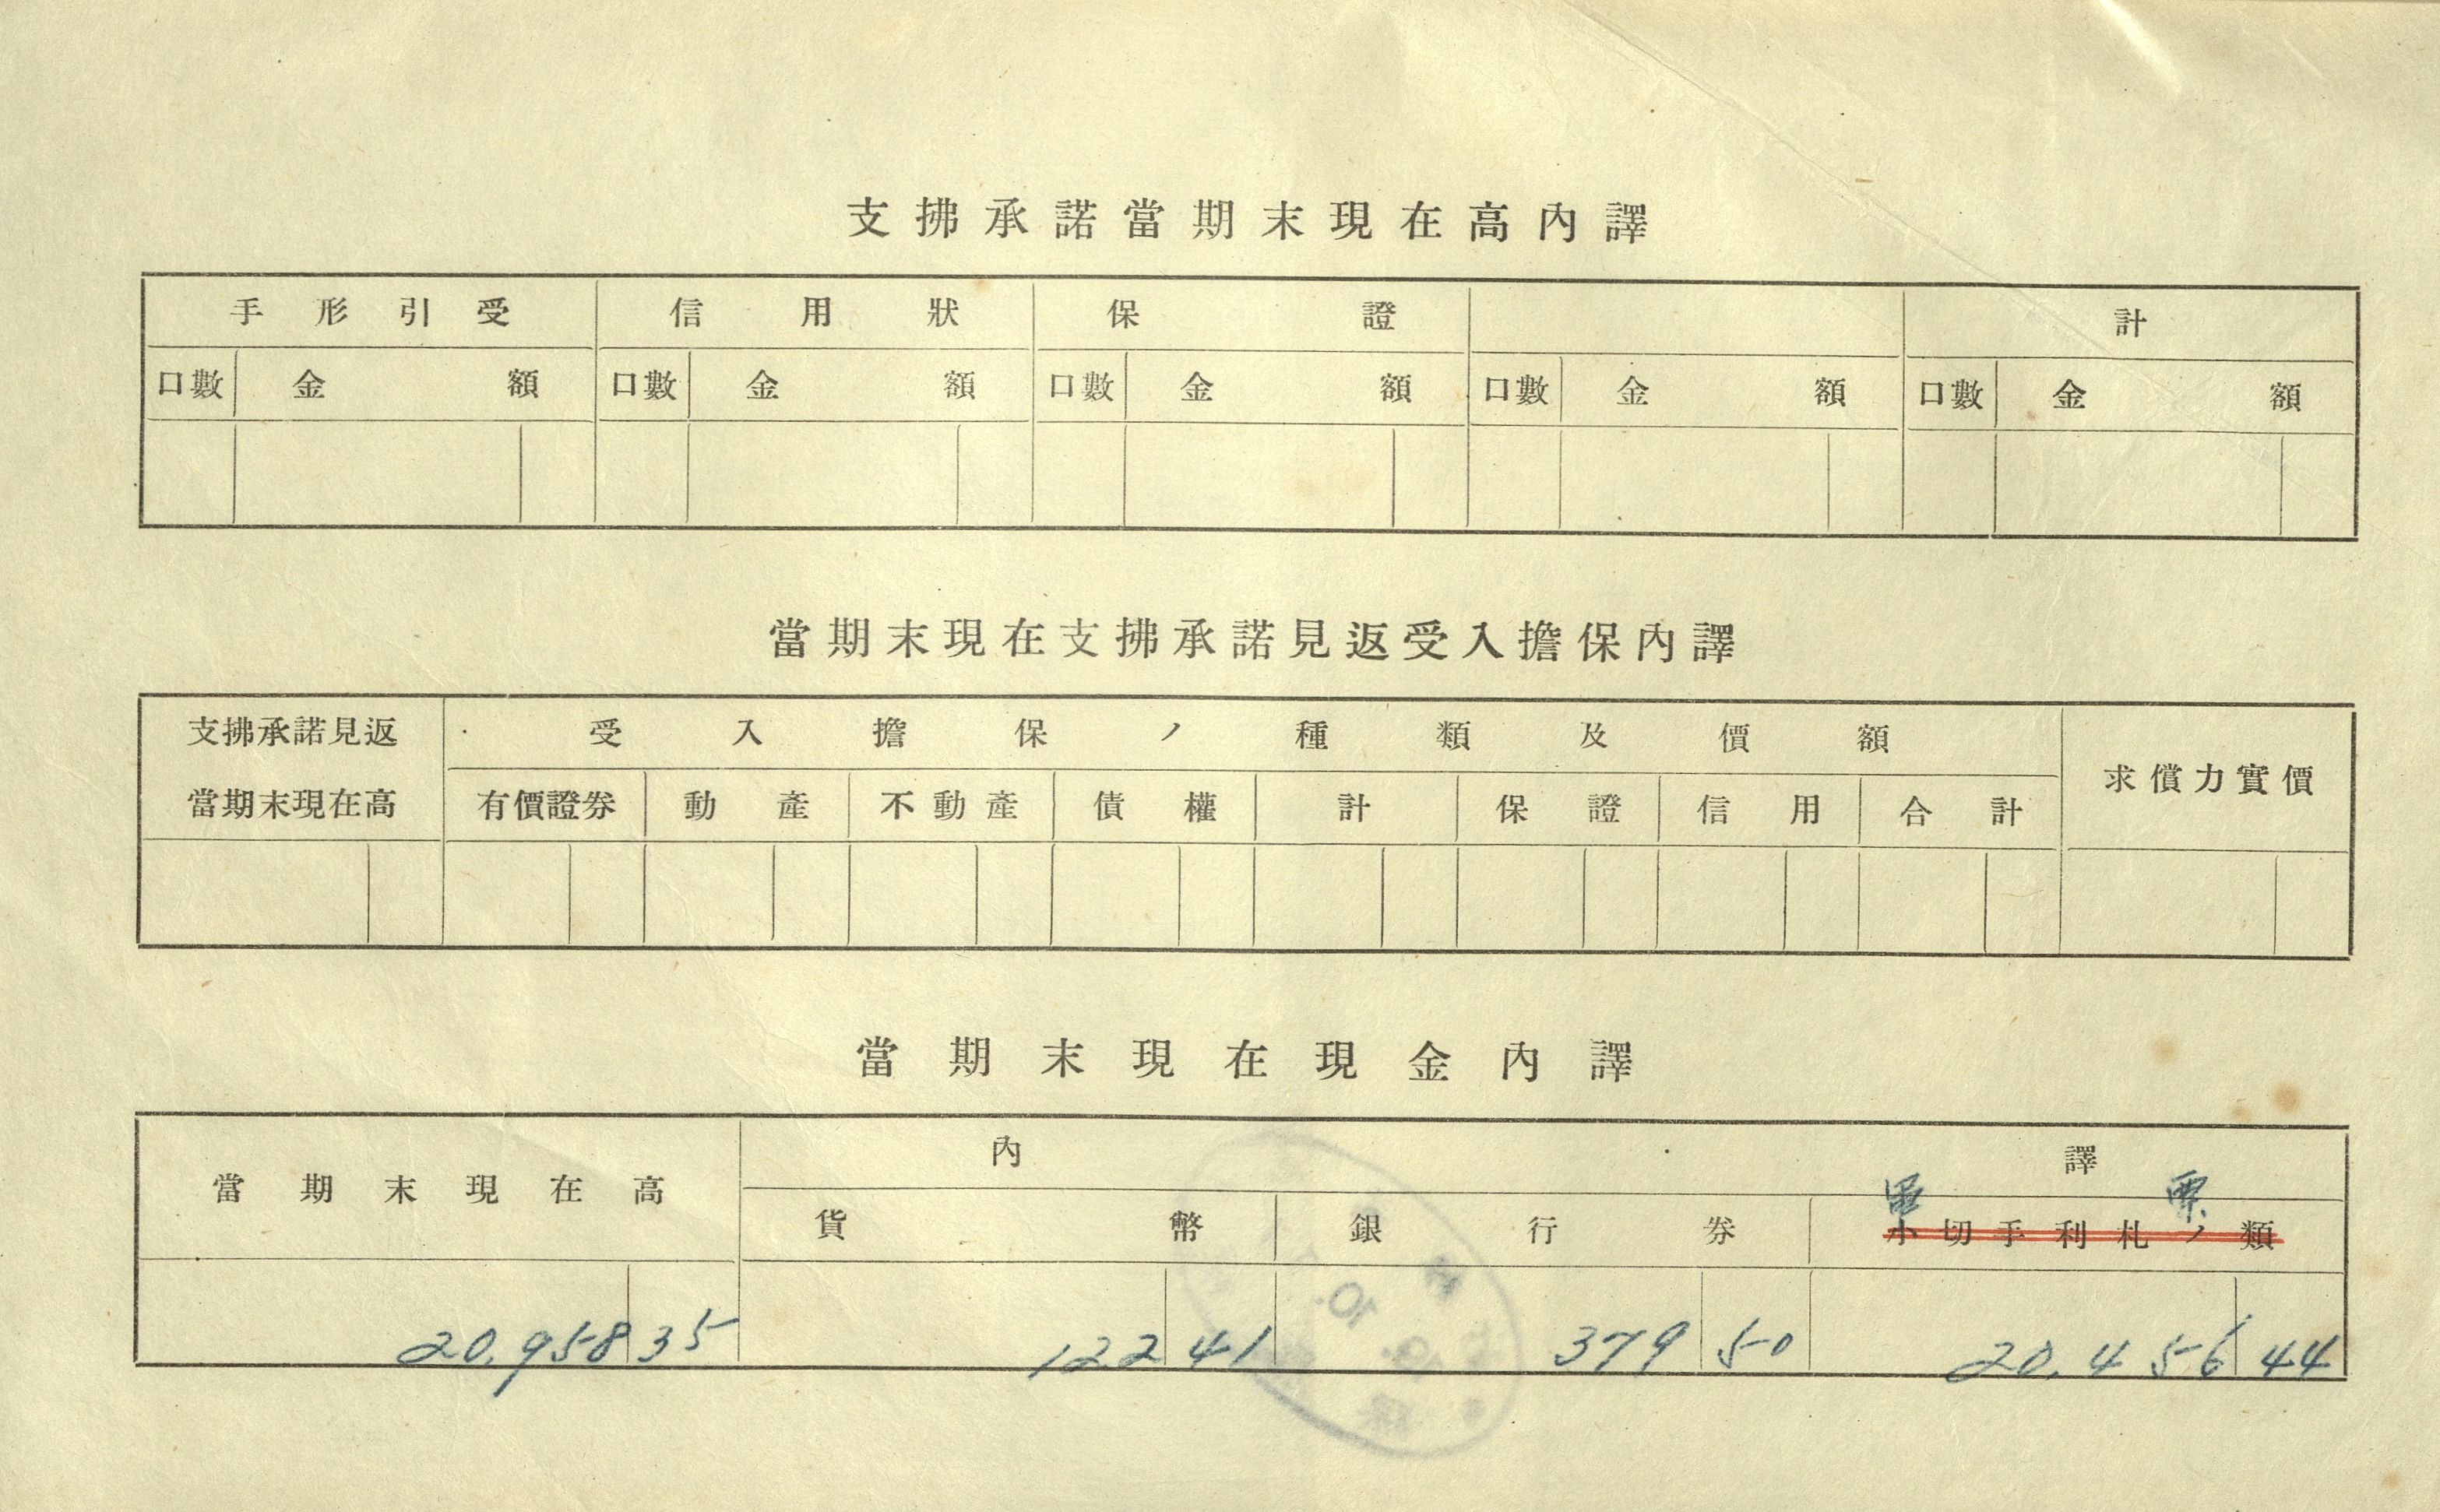 支拂承諾當期末現在高內譯
手形引受 信用狀 保證 計
口數 金額 口數 金額 口數 金額 口數 金額 口數 金額
當期末現在支拂承諾見返受入擔保內譯
支拂承諾見返 受入擔保ノ種類及價額
當期末現在高 有價證券 動產 不動產 債權 計 保證 信用 合計 求償力實價
當期末現在現金內譯
內 譯
當期末現在高 貨幣 銀行券 小切手利札ノ類
20,958 35 122 41 379 50 20,456 44